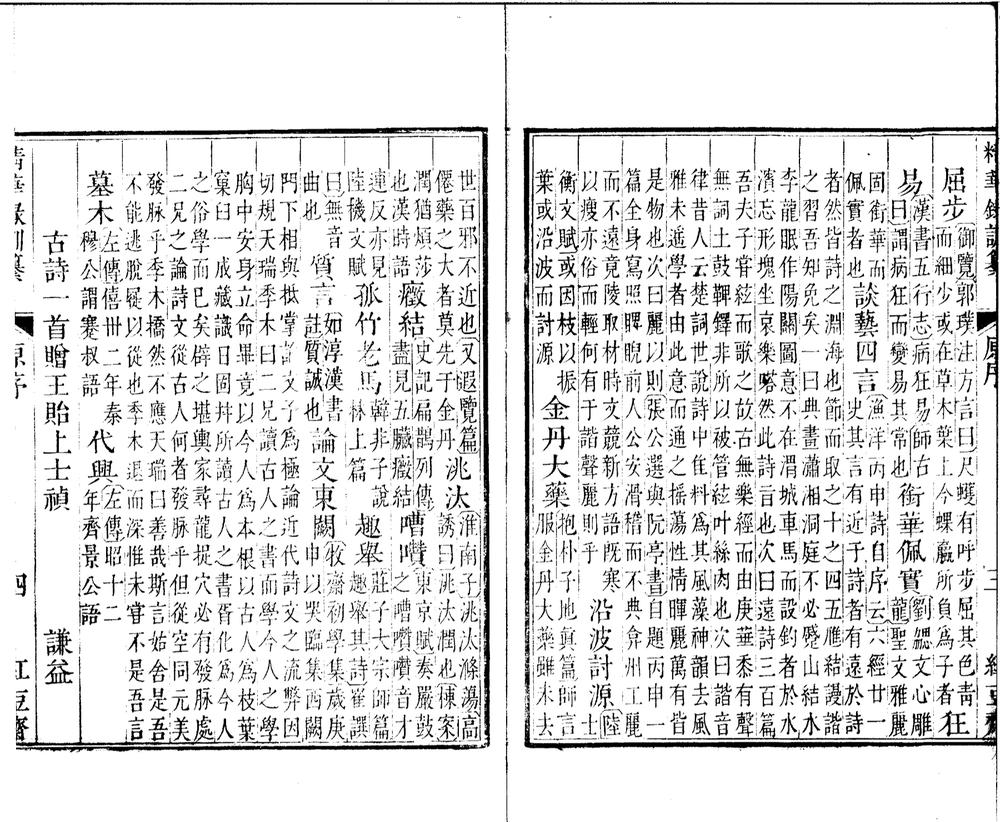 精華錄訓纂　原序　三　紅豆齋
屈步
御覽郭璞注方言曰尺蠖有呼步屈其色青
而細少或在草木葉上今蝶蠃所負爲子者
狂
易
漢書五行志病狂易師古
曰謂病狂而變易其常也
銜華佩實
劉勰文心雕
龍聖文雅麗
固銜華而
佩實者也
談藝四言
漁洋丙申詩自序云六經廿一
史其言有近于詩者有遠於詩
者然皆詩之淵海也節而取之十之四五雁結謾諧
之習吾知免矣一曰典畫瀟湘洞庭不必蹙山結水
李龍眠作陽關圖意不在渭城車馬而設釣者於水
濱忘形塊坐哀樂嗒然此詩言也次曰遠詩三百篇
吾夫子嘗絃而歌之故古無樂經而由庚華黍有聲
無詞土鼓鞞鐸非所以被管絃叶絲肉也次曰諧音
律昔人云楚詞世說詩中佳料爲其風藻神韻去風
雅未遙學者由此意而通之搖蕩性情暉麗萬有皆
是物也次曰麗以則張公選與阮亭書自題丙申一
篇全身寫照睥睨前人公安滑稽而不典弇州工麗
而不遠竟陵取材時文競新方語既寒
以瘦亦俗而輕何有于諧聲麗則乎
沿波討源
陸
士
衡文賦或因枝以振
葉或沿波而討源
金丹大藥
抱朴子地眞篇師言
服金丹大藥雖未去
世百邪不近也又暇覽篇
僊藥之大者莫先于金丹
洮汰
淮南子洮汰滌蕩高
誘曰洮汰潤也楝案
潤猶煩莎
也漢時語
癥結
史記扁鵲列傳
盡見五臟癥結
嘈囋
東京賦奏嚴鼓
之嘈囋囋音才
連反亦見
陸機文賦
孤竹老馬
韓非子說
林上篇
趣舉
莊子大宗師篇
趨舉其詩崔譔
曰無音
曲也
質言
如淳漢書
註質誠也
論文東闕
牧齋初學集歲庚
申以哭臨集西闕
門下相與抵掌論文予爲極論近代詩文之流弊因
切規天瑞季木曰二兄讀古人之書而學今人之學
胸中安身立命畢竟以今人爲本根以古人爲枝葉
窠臼一成藏識日固并所讀古人之書胥化爲今人
之俗學而已矣辟之堪輿家尋龍捉穴必有發脉處
二兄之論詩文從古人何者發脉乎但從空同元美
發脉乎季木撟然不應天瑞曰善哉斯言姑舍是吾
不能逃脫屣以從也季木退而深惟未嘗不是吾言
墓木
左傳僖卅二年秦
穆公謂蹇叔語
代興
左傳昭十二
年齊景公語
古詩一首贈王貽上士禎　謙益
精華錄訓纂　原序　四　紅豆齋